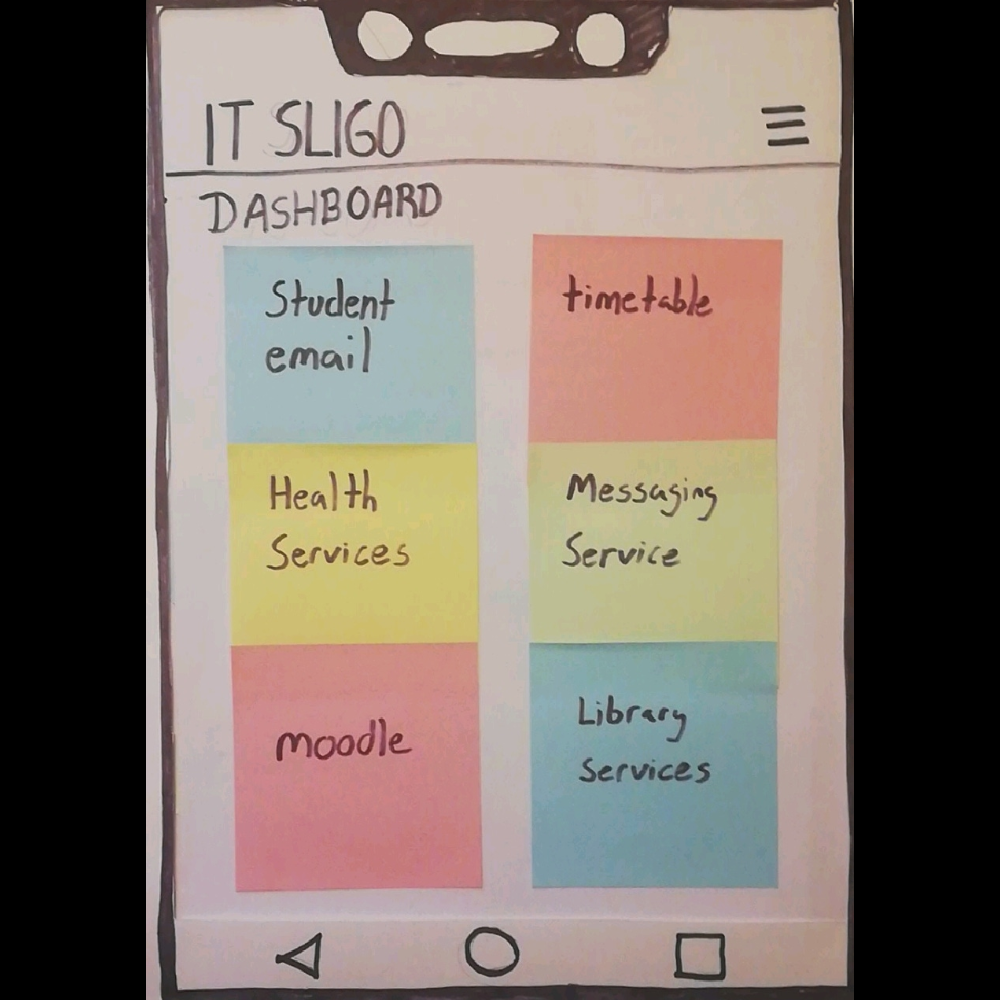 IT SLIGO
DASHBOARD
Student
email
timetable
Health
Services
Messaging
Service
moodle
Library
Services